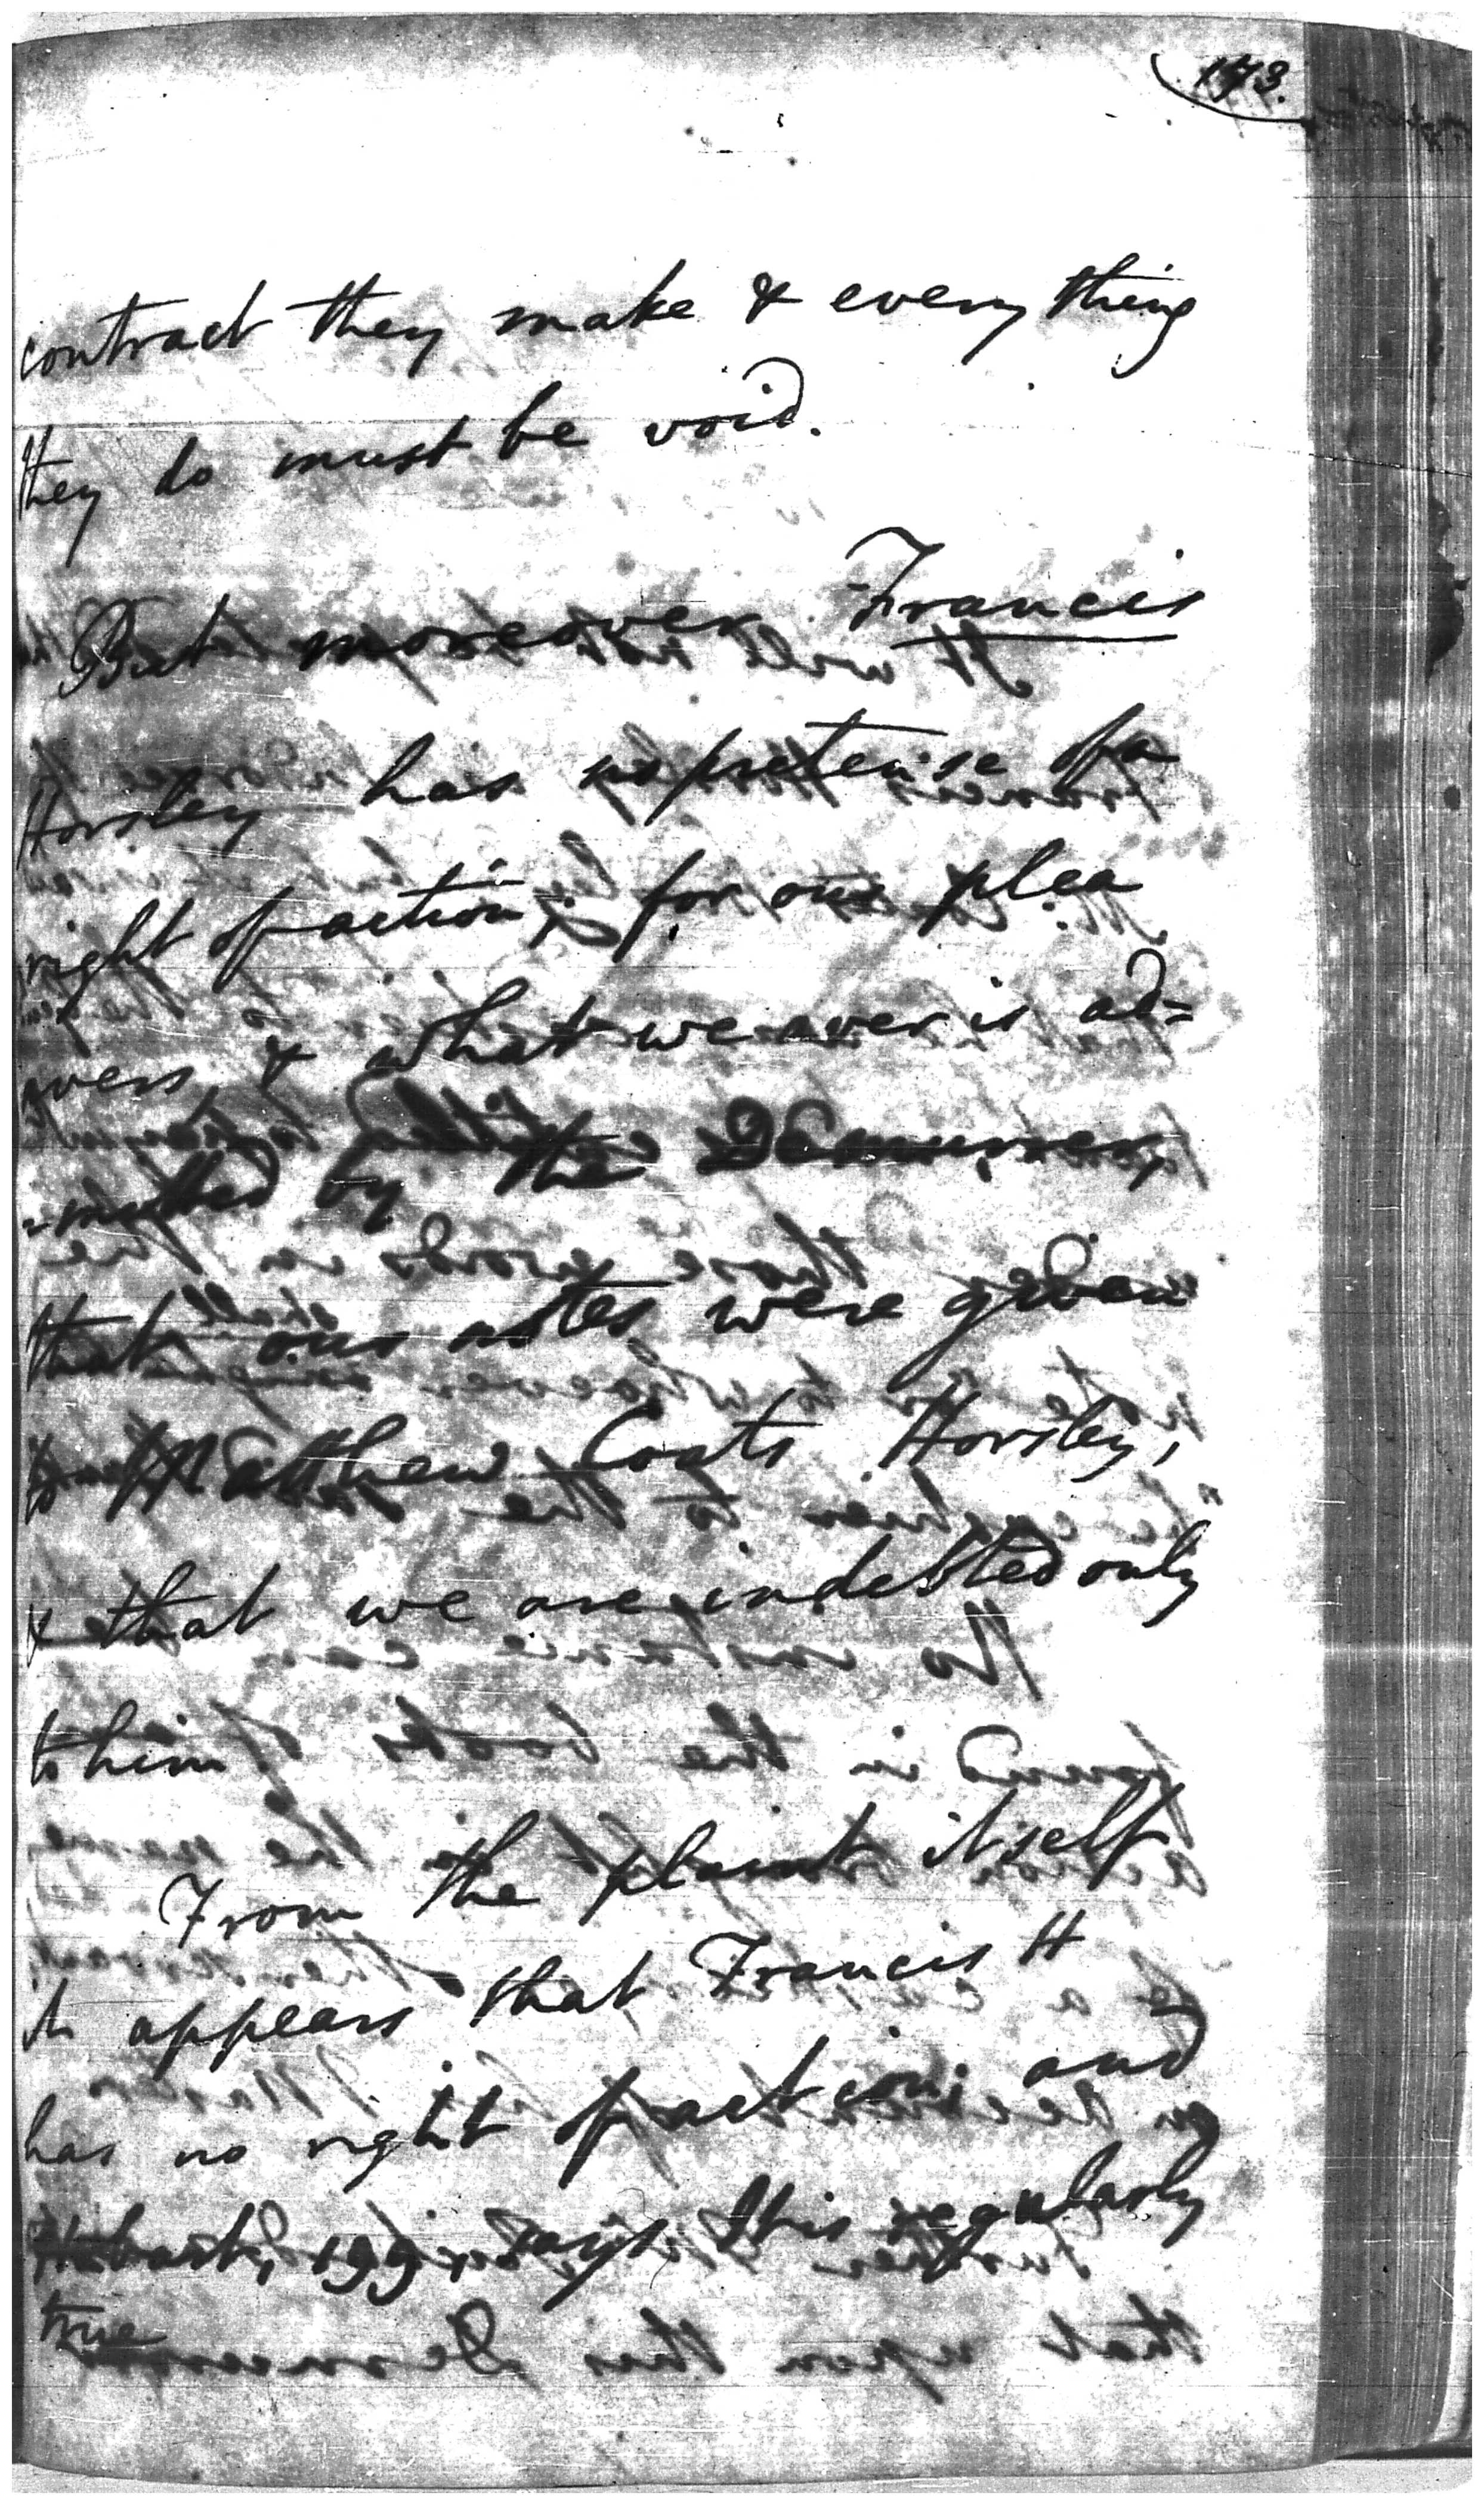 173.
contract they make & every thing
they do must be void.
But moreover Francis
Horsley has no pretense of a
right of action; for our plea
avers, & what we aver is ad=
=mitted by the Demurrer,
that our notes were given
to Matthew Coats Horsley,
& that we are indebted only
to him
From the plaint itself
it appears that Francis H
has no right of action; and
Hobart, 199 says It is regularly
true